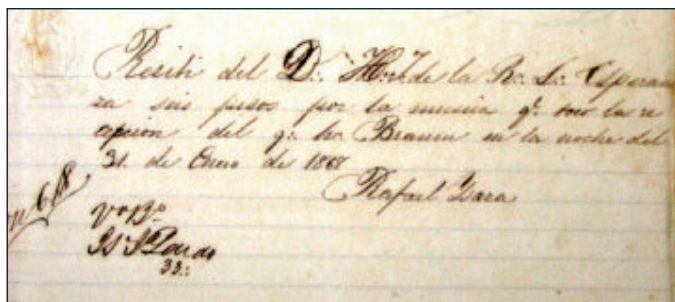 Resibi del D∴ H∴ de la R∴ L∴ Esperan
za seis pesos por la musica q.e toco la re
epcion del q∴ h∴ Beauru en la noche del
31. de Enero de 1868
Rafael Ysaza
VoBo
33∴